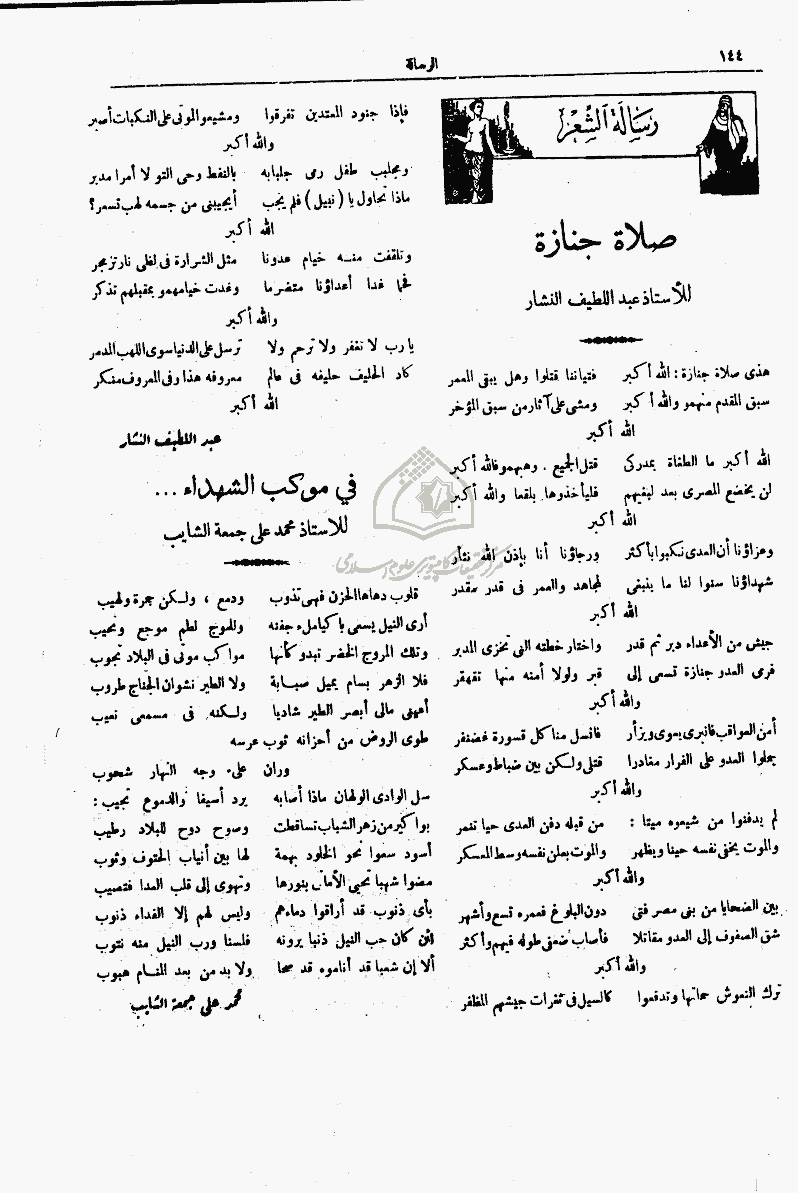 ١٤٤
الرسالة
رسالة الشعر
صلاة جنازة
للأستاذ عبد اللطيف النشار
هذى صلاة جنازة : الله أكبر فتياننا قتلوا وهل يبقى المعمر
سبق المقدم منهمو والله أكبر ومشى على آثار من سبق المؤخر
الله أكبر
الله أكبر ما الطغاة بمدركى قتل الجميع . وهبهمو فالله أكبر
لن يخضع المصرى بعد ليثبهم فليأخذوها بلقعا والله أكبر
الله أكبر
وعزاؤنا أن العدى نكبوا بأكثر ورجاؤنا أنا بإذن الله نثأر
شهداؤنا سنوا لنا ما ينبغى لمجاهد والعمر فى قدر مقدر
الله أكبر
جيش من الأعداء دبر ثم قدر واختار خطته التى تخزى المدبر
فرمى العدو جنازة تسعى إلى قبر ولولا أمنه منها تقهقر
والله أكبر
أمن العواقب فانبرى يعوى ويزأر فانسل منا كل قسورة غضنفر
جعلوا العدو على الفرار مغادرا قتلى ولكن بين ضباط وعسكر
والله أكبر
لم يدفنوا من شيعوه ميتا : من قبله دفن العدى حيا تنمر
والموت يخفى نفسه حينا ويظهر والموت يعلن نفسه وسط المعسكر
والله أكبر
بين الضحايا من بنى مصر فتى دون البلوغ فعمره تسع وأشهر
شق الصفوف إلى العدو مقاتلا فأصاب ضعفى طوله فيهم وأكثر
والله أكبر
ترك النعوش حماتها وتدفعوا كالسيل فى ثغرات جيشهم المظفر
فإذا جنود المعتدين تفرقوا ومشيعو الموتى على النكبات أصبر
والله أكبر
ومجلبب طفل رمى جلبابه بالنفط وحى التو لا أمرا مدبر
ماذا تحاول يا ( نبيل ) فلم يجب أيجيبنى من جسمه لهب تسعر ؟
الله أكبر
وتلقفت منه خيام عدونا مثل الشرارة فى لظى نار تزمجر
فحما غدا أعداؤنا متضرما وغدت خيامهمو بمقبلهم تذكر
والله أكبر
يا رب لا تغفر ولا ترحم ولا ترسل على الدنيا سوى اللهب المدمر
كاد الحليف حليفه فى عالم معروفه هذا وفى المعروف منكر
الله أكبر
عبد اللطيف النشار
في موكب الشهداء ...
للأستاذ محمد على جمعة الشايب
قلوب دهاها الحزن فهى تذوب ودمع ، ولكن جمرة ولهيب
أرى النيل يسعى باكيا ملء جفنه وللموج لطم موجع ونحيب
وتلك المروج الخضر تبدو كأنها مواكب موتى فى البلاد تجوب
فلا الزهر بسام يميل صبابة ولا الطير نشوان الجناح طروب
أعينى مالى أبصر الطير شاديا ولكنه فى مسمعى نعيب
طوى الروض من أحزانه ثوب عرسه
وران على وجه النهار شحوب
سل الوادى الولهان ماذا أصابه يرد أسيفا والدموع تجيب :
بواكير من زهر الشباب تساقطت وصوح دوح للبلاد رطيب
أسود سعوا نحو الخلود بهمة لها بين أنياب الحتوف وثوب
مضوا شهبا تحيى الأمانى بنورها وتهوى إلى قلب العدا فتصيب
بأى ذنوب قد أراقوا دماءهم وليس لهم إلا الفداء ذنوب
لئن كان حب النيل ذنبا يرونه فلسنا ورب النيل منه نتوب
ألا إن شعبا قد أناموه قد صحا ولا بد من بعد المنام هبوب
محمد على جمعة الشايب
مركز تحقيقات كامپيوترى علوم اسلامى